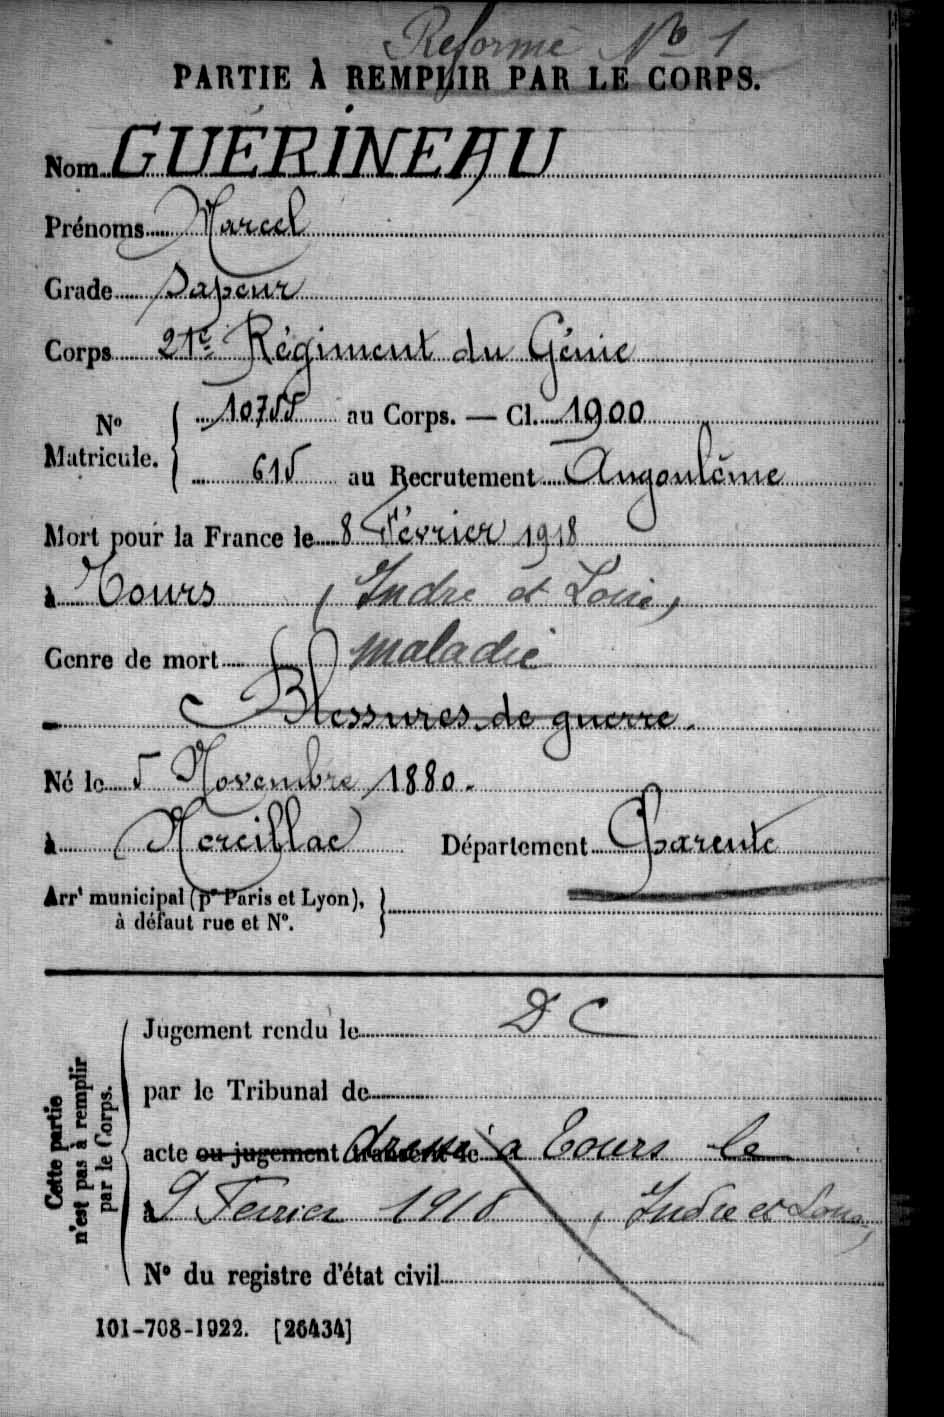 Réformé No 1
PARTIE À REMPLIR PAR LE CORPS.
Nom GUÉRINEAU
Prénoms Marcel
Grade Sapeur
Corps 21e Régiment du Génie
No Matricule. 10755 au Corps. — Cl. 1900
615 au Recrutement Angoulême
Mort pour la France le 8 Février 1918
à Tours (Indre et Loire)
Genre de mort maladie
Blessures de guerre.
Né le 5 Novembre 1880.
à Mereillac Département Charente
Arrt municipal (pr Paris et Lyon),
à défaut rue et No.
Cette partie n'est pas à remplir par le Corps.
Jugement rendu le DC
par le Tribunal de
acte ou jugement transcrit le dressé à Tours le
à 9 Fevrier 1918 (Indre et Loire)
No du registre d'état civil
101-708-1922. [26434]